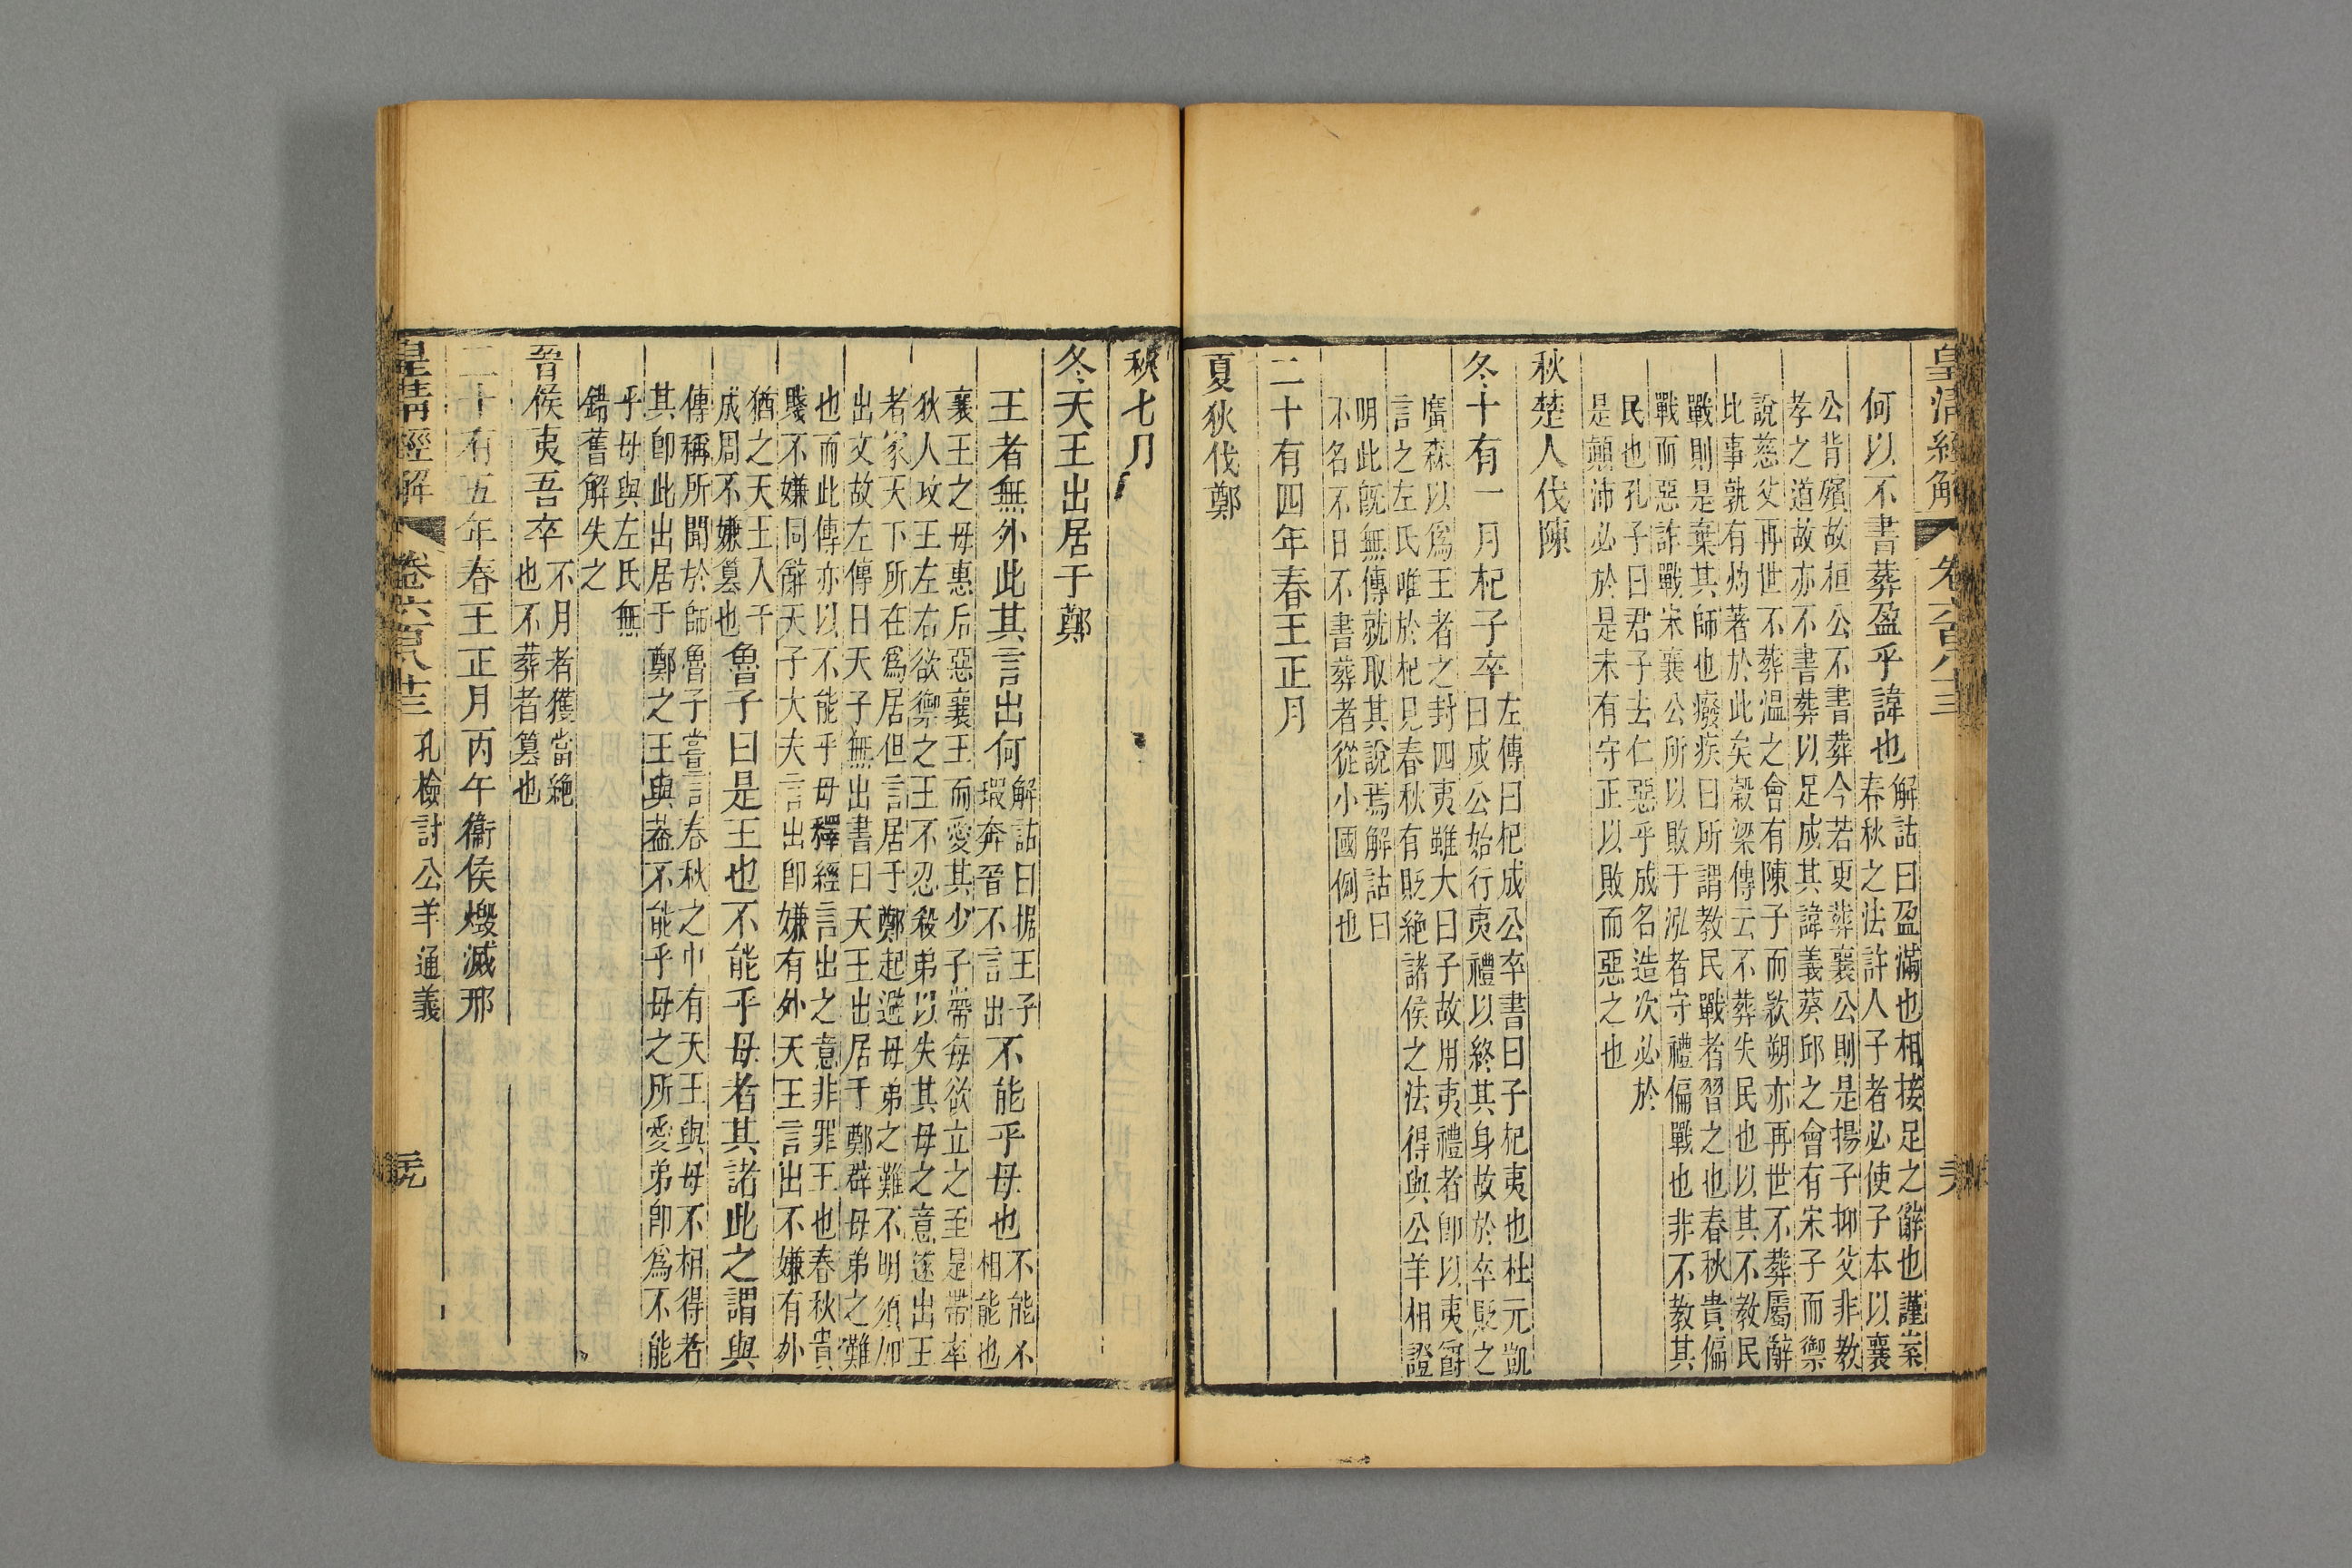 皇清經解
卷六百八十三
何以不書葬盈乎諱也
解詁曰盈滿也相接足之辭也謹案
春秋之法許人子者必使子本以襄
公背殯故桓公不書葬今若更葬襄公則是揚子抑父非教
孝之道故亦不書葬以足成其諱義葵邱之會有宋子而禦
說慈父再世不葬溫之會有陳子而款朔亦再世不葬屬辭
比事孰有灼著於此矣穀梁傳云不葬失民也以其不教民
戰則是棄其師也癈疾曰所謂教民戰者習之也春秋貴偏
戰而惡詐戰宋襄公所以敗于泓者守禮偏戰也非不教其
民也孔子曰君子去仁惡乎成名造次必於
是顛沛必於是未有守正以敗而惡之也
秋楚人伐陳
冬十有一月杞子卒
左傳曰杞成公卒書曰子杞夷也杜元凱
曰成公始行夷禮以終其身故於卒貶之
廣森以為王者之封四夷雖大曰子故用夷禮者卽以夷爵
言之左氏唯於杞見春秋有貶絕諸侯之法得與公羊相證
明此旣無傳就取其說焉解詁曰
不名不日不書葬者從小國例也
二十有四年春王正月
夏狄伐鄭
秋七月
冬天王出居于鄭
王者無外此其言出何
解詁曰据王子
瑕奔晉不言出
不能乎母也
不能不
相能也
襄王之母惠后惡襄王而愛其少子帶每欲立之至是帶率
狄人攻王左右欲禦之王不忍殺弟以失其母之意遂出王
者家天下所在為居但言居于鄭起避母弟之難不明須加
出文故左傳曰天子無出書曰天王出居于鄭辟母弟之難
也而此傳亦以不能乎母釋經言出之意非罪王也春秋貴
賤不嫌同辭天子大夫言出卽嫌有外天王言出不嫌有外
猶之天王入于
成周不嫌篡也
魯子曰是王也不能乎母者其諸此之謂與
傳稱所聞於師魯子嘗言春秋之中有天王與母不相得者
其卽此出居于鄭之王與葢不能乎母之所愛弟卽為不能
乎母與左氏無
錯舊解失之
晉侯夷吾卒
不月者獲當絕
也不葬者篡也
二十有五年春王正月丙午衞侯燬滅邢
皇清經解
卷六百八十三
孔檢討公羊通義